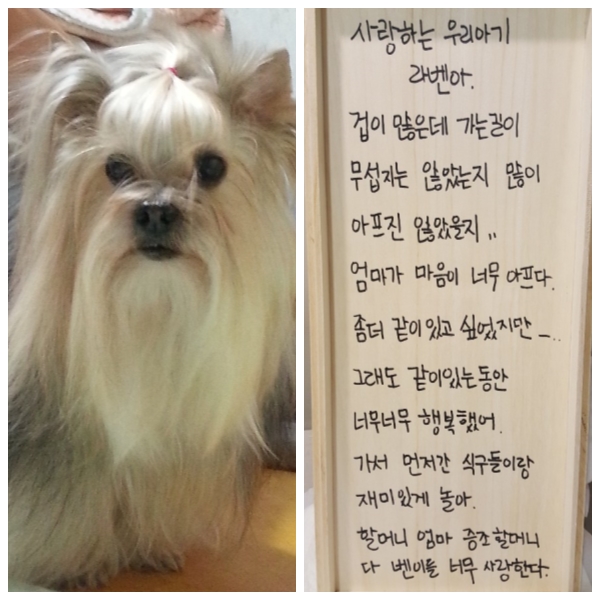 사랑하는 우리아기
라벤아.
겁이 많은데 가는길이
무섭지는 않았는지 많이
아프진 않았을지 ,,
엄마가 마음이 너무 아프다.
좀더 같이있고 싶었지만 ㅡ..
그래도 같이있는동안
너무너무 행복했어.
가서 먼저간 식구들이랑
재미있게 놀아.
할머니 엄마 증조할머니
다 벤이를 너무 사랑한다.